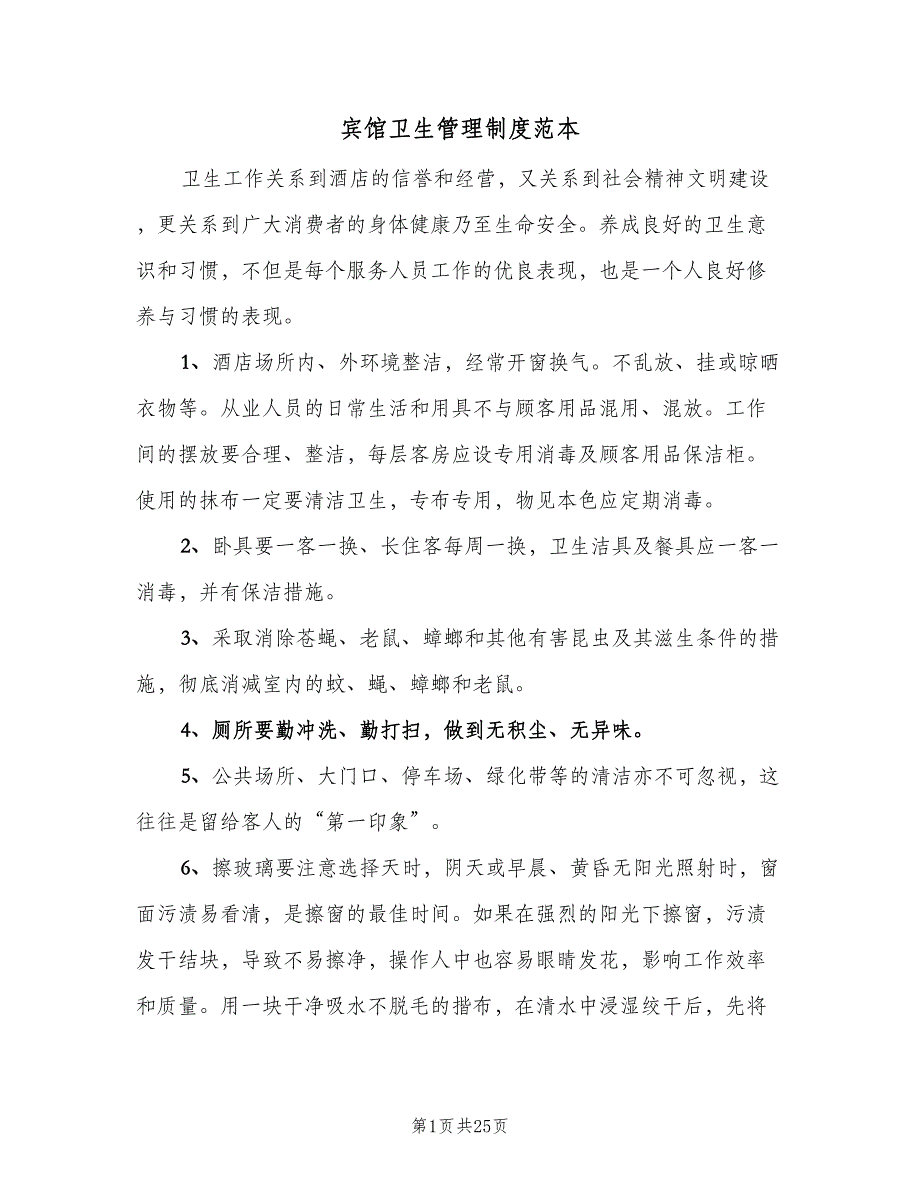 宾馆卫生管理制度范本
卫生工作关系到酒店的信誉和经营，又关系到社会精神文明建设
，更关系到广大消费者的身体健康乃至生命安全。养成良好的卫生意
识和习惯，不但是每个服务人员工作的优良表现，也是一个人良好修
养与习惯的表现。
1、酒店场所内、外环境整洁，经常开窗换气。不乱放、挂或晾晒
衣物等。从业人员的日常生活和用具不与顾客用品混用、混放。工作
间的摆放要合理、整洁，每层客房应设专用消毒及顾客用品保洁柜。
使用的抹布一定要清洁卫生，专布专用，物见本色应定期消毒。
2、卧具要一客一换、长住客每周一换，卫生洁具及餐具应一客一
消毒，并有保洁措施。
3、采取消除苍蝇、老鼠、蟑螂和其他有害昆虫及其滋生条件的措
施，彻底消减室内的蚊、蝇、蟑螂和老鼠。
4、厕所要勤冲洗、勤打扫，做到无积尘、无异味。
5、公共场所、大门口、停车场、绿化带等的清洁亦不可忽视，这
往往是留给客人的“第一印象”。
6、擦玻璃要注意选择天时，阴天或早晨、黄昏无阳光照射时，窗
面污渍易看清，是擦窗的最佳时间。如果在强烈的阳光下擦窗，污渍
发干结块，导致不易擦净，操作人中也容易眼睛发花，影响工作效率
和质量。用一块干净吸水不脱毛的揩布，在清水中浸湿绞干后，先将
第1页共25页